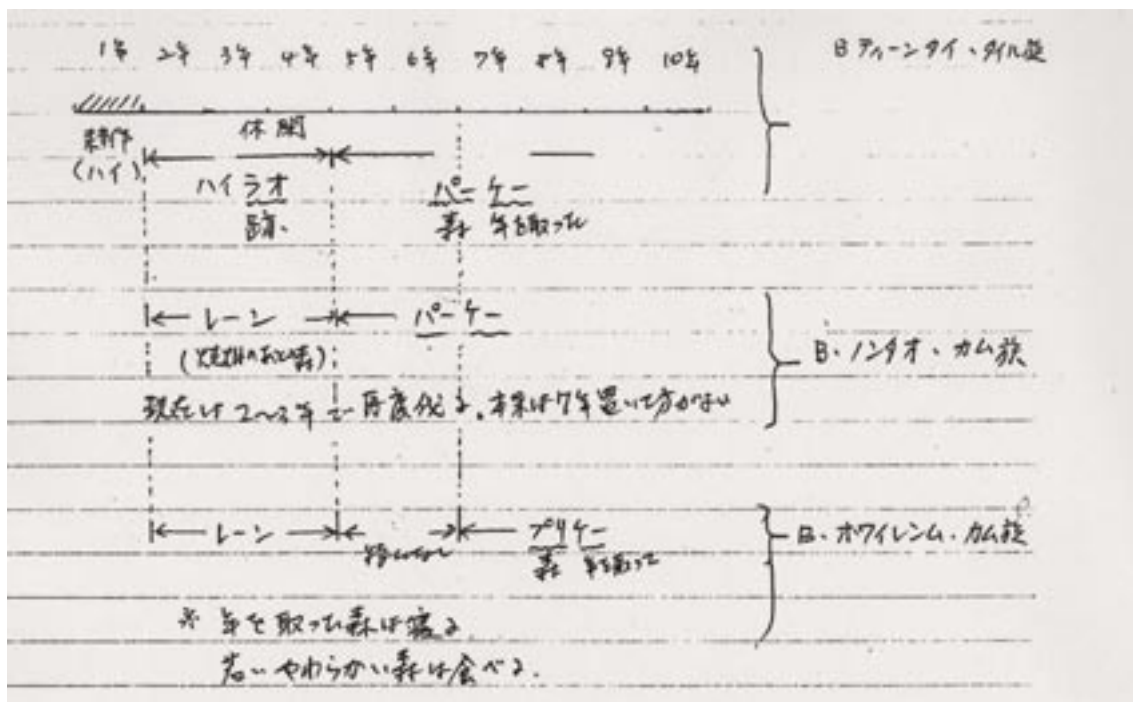 1年 2年 3年 4年 5年 6年 7年 8年 9年 10年
B ティーンタイ・タイル族
耕作
(ハイ)
休閑
ハイラオ
パーケー
森 年を取った
レーン
パーケー
B・ノンタオ・カム族
現在は2〜3年で再度伐る。本来は7年置いた方がよい
レーン
プリケー
森 年を取って
B・ホワイレンム・カム族
※ 年を取った森は寝る
若いやわらかい森は食べる.